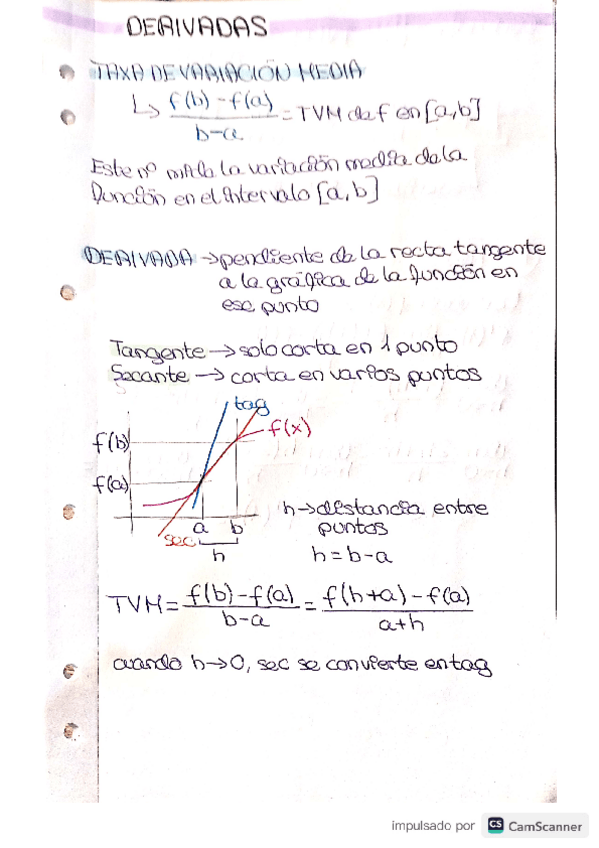 DERIVADAS
TAXA DE VARIACIÓN MEDIA
↳ f(b)-f(a)/b-a = TVM de f en [a,b]
Este nº mide la variación media de la
función en el intervalo [a,b]
DERIVADA → pendiente de la recta tangente
a la gráfica de la función en
ese punto
Tangente → solo corta en 1 punto
Secante → corta en varios puntos
tag
f(x)
f(b)
f(a)
a b
sec
h
h → distancia entre
puntos
h = b-a
TVM = f(b)-f(a)/b-a = f(h+a)-f(a)/a+h
cuando h→0, sec se convierte en tag
impulsado por CS CamScanner